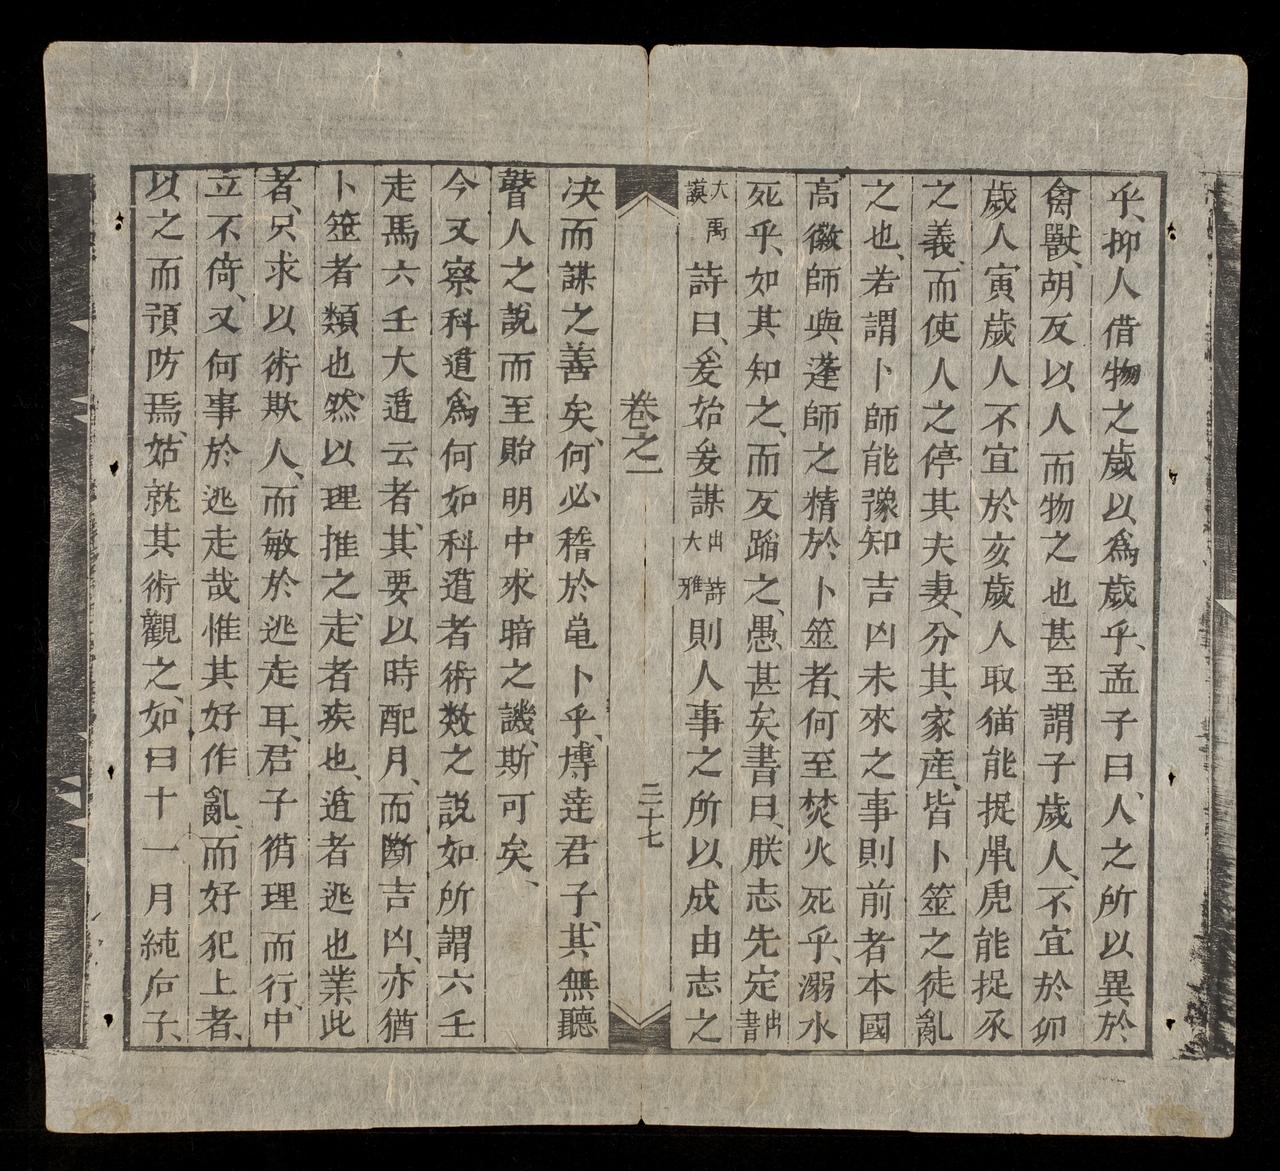 乎、抑人借物之歲以爲歲乎、孟子曰、人之所以異於
禽獸、胡反以人而物之也甚至謂子歲人、不宜於卯
歲人寅歲人不宜於亥歲人取猫能捉鼠虎能捉豕
之義、而使人之停其夫妻、分其家產、皆卜筮之徒亂
之也、若謂卜師能豫知吉凶未來之事則前者本國
高徽師與蓬師之精於卜筮者、何至焚火死乎、溺水
死乎、如其知之、而反蹈之、愚甚矣書曰、朕志先定出書
大禹謨詩曰、爰始爰謀出詩大雅則人事之所以成由志之
卷之一
二十七
决而謀之善矣、何必稽於龟卜乎、博達君子、其無聽
瞽人之說而至貽明中求暗之譏、斯可矣、
今又察科遁爲何如科遁者術数之説如所謂六壬
走馬六壬大遁云者、其要以時配月、而断吉凶、亦猶
卜筮者類也、然以理推之、走者疾也、遁者逃也業此
者、只求以術欺人、而敏於逃走耳、君子循理而行、中
立不倚、又何事於逃走哉惟其好作亂、而好犯上者、
以之而預防焉、姑就其術觀之、如曰十一月純后子、